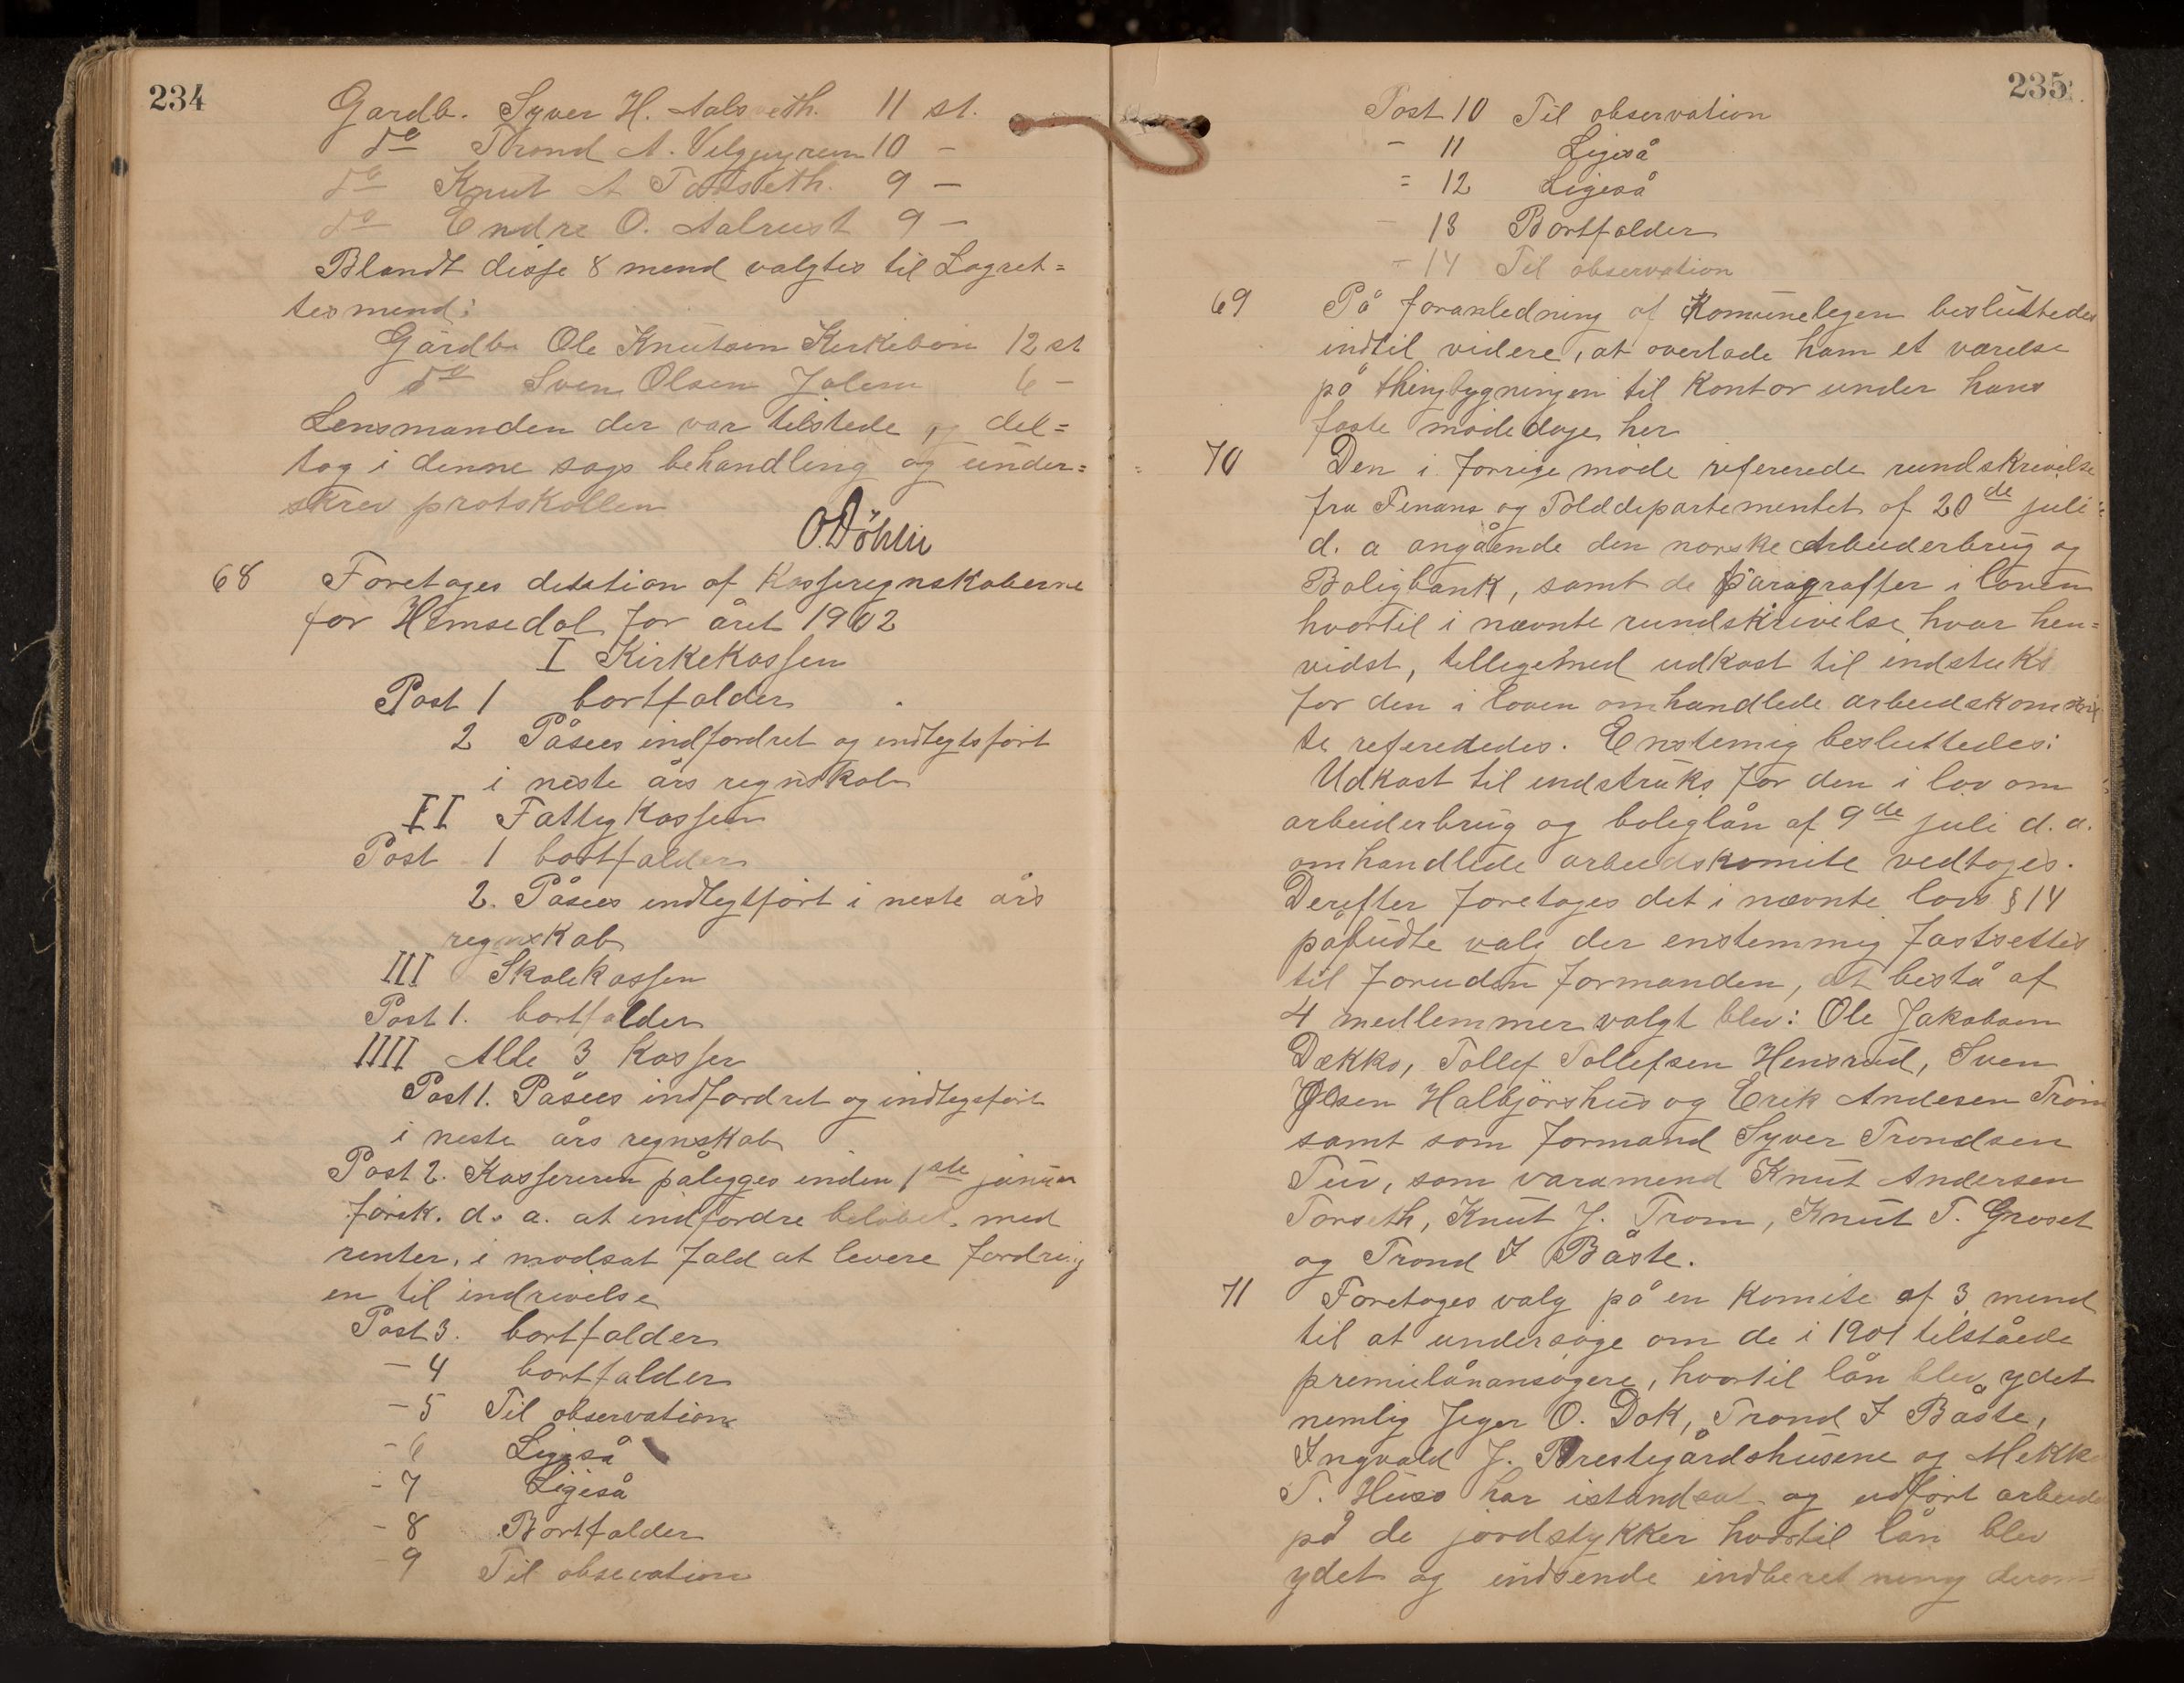 234
Gardb. Syver H. Aalsveth. 11 st.
do Trond A. 10 -
do Knut A Torseth. 9 -
do Endre O. Aalrust 9 -
Blandt disse 8 mend valgtes til Lagret=
tesmend:
Gårdbr Ole Knutsen Kirkebøn 12 st
do Sven Olsen Jalem 6 -
Lensmanden der var tilstede og del=
tog i denne sags behandling og under=
skrev protokollen
O. Döhlie
68 Foretoges desition af Kasseregnskaberne
for Hemsedal for året 1902
I Kirkekassen
Post 1 bortfalder
2 Påsees indfordret og indtegtsført
i neste års regnskab
II Fattigkassen
Post 1 bortfalder
2. Påsees indtegtført i neste års
regnskab
III Skolekassen
Post 1. bortfalder
IIII Alle 3 kasser
Post 1. Påsees indfordret og indtegsført
i neste års regnskab
Post 2. Kassereren pålegges inden 1ste januar
førsk. d. a. at indfordre beløbet med
renter, i modsat fald at levere fordring
en til indrivelse
Post 3. bortfalder
- 4 bortfalder
- 5 Til observation
- 6 Ligeså
- 7 Ligeså
- 8 Bortfalder
- 9 Til obsevation
235
Post 10 Til observation
- 11 Ligeså
= 12 Ligeså
- 13 Bortfalder
- 14 Til observation
69 På foranledning af Komunelegen besluttedes
indtil videre, at overlade ham et værelse
på thingbygningen til kontor under hans
faste mødedage her
70 Den i forrige møde refererede rundskrivelse
fra Finans og Tolddepartementet af 20de juli
d. a angående den norske Arbeiderbrug og
Boligbank, samt de paragraffer i loven
hvortil i nævnte rundskrivelse hvar hen=
vidst, tilligemed udkast til indstuks
for den i loven omhandlede arbeidskommi
te refereredes. Enstemig besluttedes:
Udkast til indstruks for den i lov om
arbeiderbrug og boliglån af 9de juli d. a.
omhandlede arbeidskomite vedtoges.
Derefter foretoges det i nævnte lovs § 14
påbudte valg der enstemmig fastsettes
til foruden formanden, at bestå af
4 medlemmer valgt blev: Ole Jakobsen
Dækko, Tollef Tollefsen Hensrud, Sven
Olsen Halbjørshus og Erik Andesen Trøim
samt som formand Syver Trondsen
Tuv, som varamend Knut Andersen
Torseth, Knut J. Trøm, Knut T. Grøset
og Trond I Båste.
71 Foretoges valg på en komite af 3 mend
til at undersøge om de i 1901 tilståede
premielånansøgere, hvortil lån blev ydet
nemlig Jeger O. Dok, Trond I Båste,
Ingvald J. Prestegårdshusene og Mekk
T. Huso har istandsat og udført arbeide
på de jordstykker hvortil lån blev
ydet og indsende indberetning derom